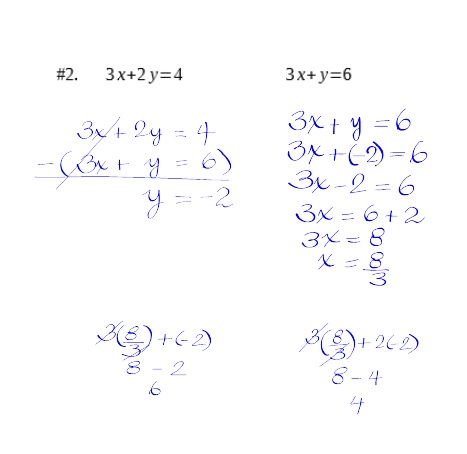 #2. 3x+2y=4 3x+y=6
3x + 2y = 4
-(3x + y = 6)
y = -2
3x + y = 6
3x + (-2) = 6
3x - 2 = 6
3x = 6 + 2
3x = 8
x = 8/3
3(8/3) + (-2)
8 - 2
6
3(8/3) + 2(-2)
8 - 4
4